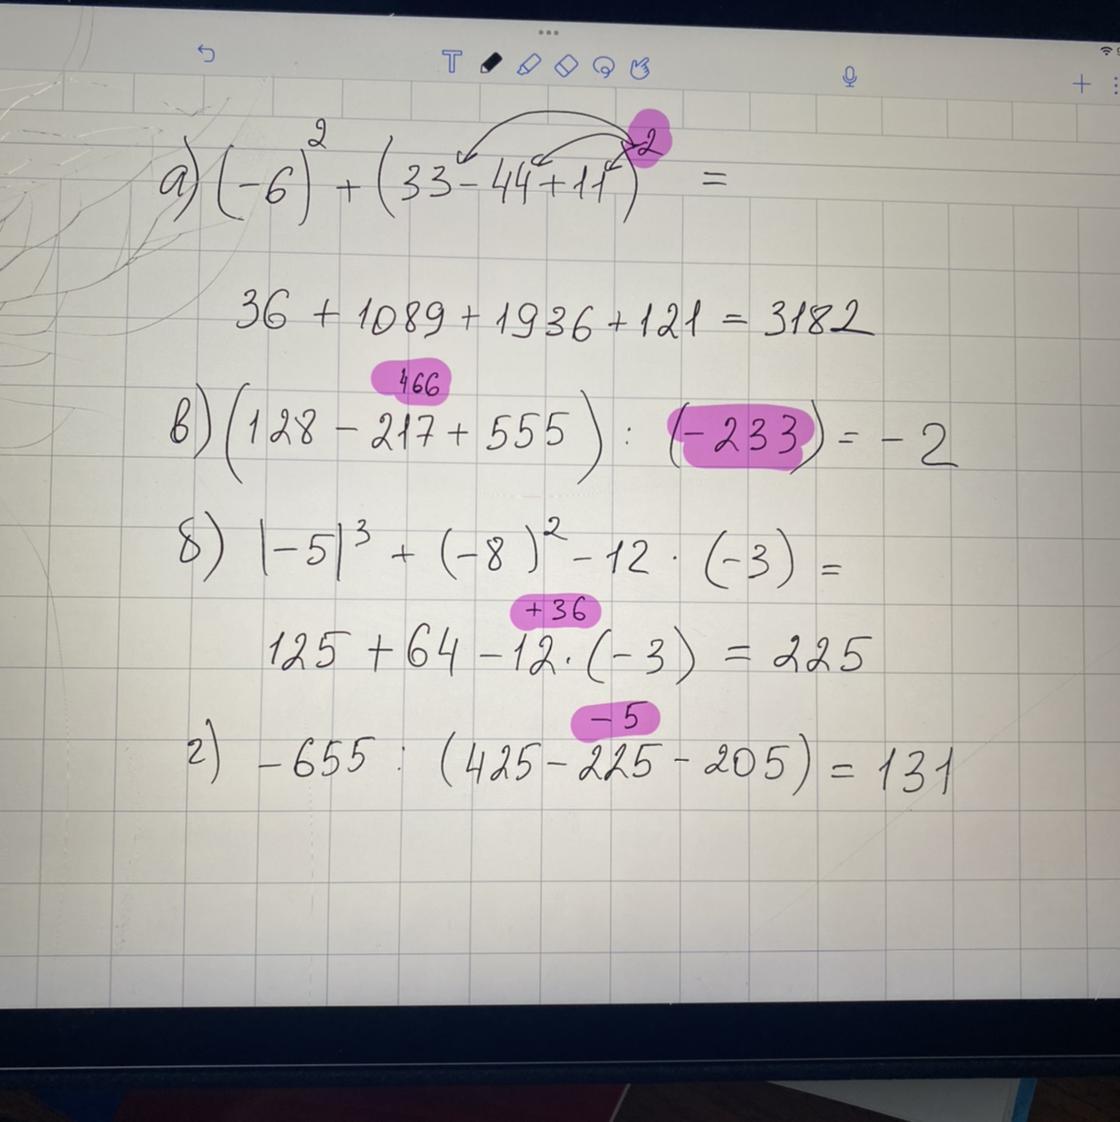 а) (-6)² + (33 - 44 + 11)² =
36 + 1089 + 1936 + 121 = 3182
466
в) (128 - 217 + 555) : (-233) = - 2
б) |-5|³ + (-8)² - 12 · (-3) =
+ 36
125 + 64 - 12 · (-3) = 225
- 5
г) -655 : (425 - 225 - 205) = 131